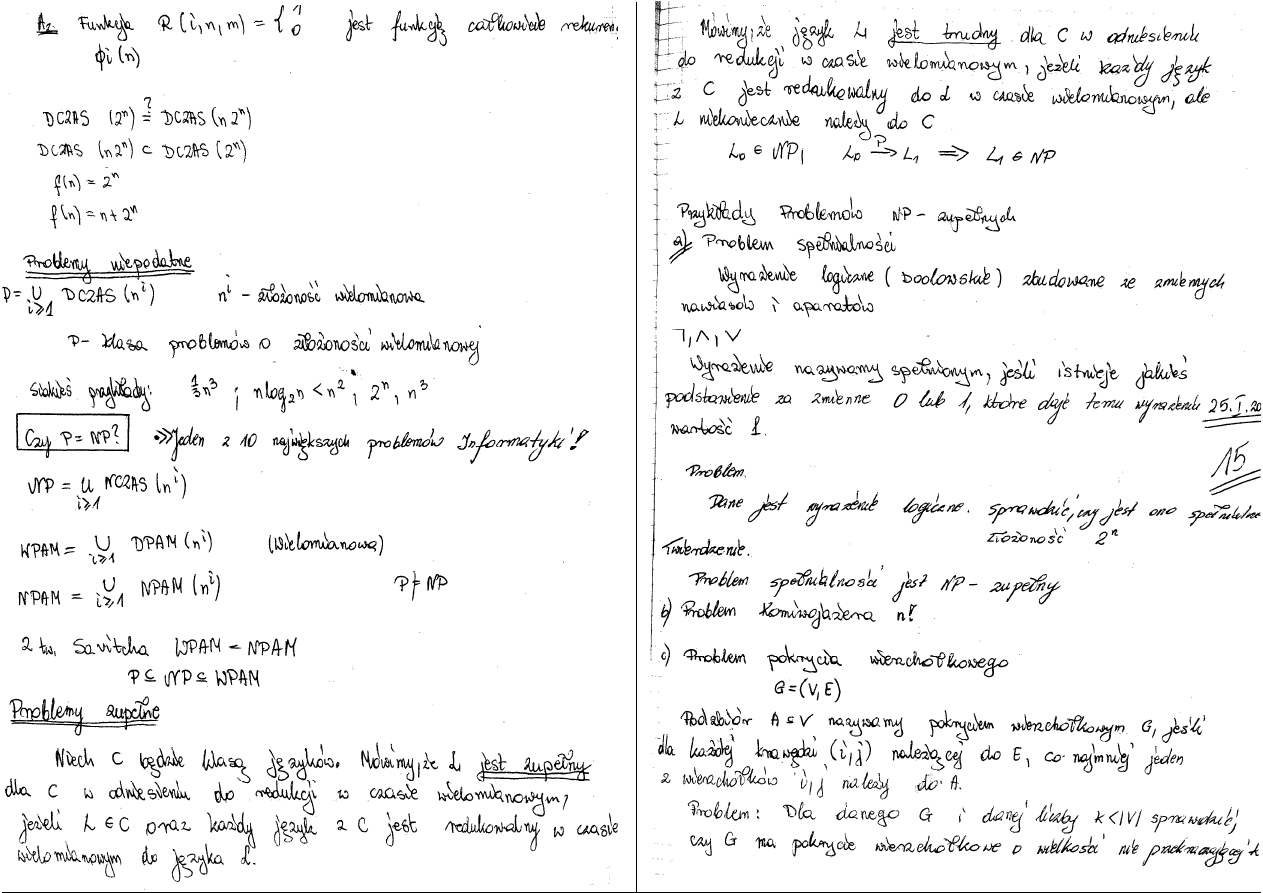 A2 Funkcja R(i,n,m) = { 1 0 jest funkcją całkowicie rekuren.
ϕi(n)
DCZAS (2^n) ?= DCZAS (n2^n)
DCZAS (n2^n) ⊂ DCZAS (2^n)
f(n) = 2^n
f(n) = n + 2^n
Problemy niepodatne
P = ∪ i≥1 DCZAS (n^i) n^i - złożoność wielomianowa
P - klasa problemów o złożoności wielomianowej
przykłady: 1/3 n^3 ; n log2 n < n^2 ; 2^n, n^3
Czy P = NP? Jeden z 10 największych problemów Informatyki!
NP = ∪ i≥1 NCZAS (n^i)
WPAM = ∪ i≥1 DPAM (n^i) (wielomianowa)
NPAM = ∪ i≥1 NPAM (n^i) P ≠ NP
z tw. Savitcha WPAM = NPAM
P ⊆ NP ⊆ WPAM
Problemy zupełne
Niech C będzie klasą języków. Mówimy, że L jest zupełny
dla C w odniesieniu do redukcji w czasie wielomianowym,
jeżeli L ∈ C oraz każdy język z C jest redukowalny w czasie
wielomianowym do języka L.
Mówimy, że język L jest trudny dla C w odniesieniu
do redukcji w czasie wielomianowym, jeżeli każdy język
z C jest redukowalny do L w czasie wielomianowym, ale
L niekoniecznie należy do C
L0 ∈ NP, L0 →P L1 ⟹ L1 ∈ NP
Przykłady Problemów NP - zupełnych
a) Problem spełnialności
Wyrażenie logiczne (boolowskie) zbudowane ze zmiennych
nawiasów i aparatów
¬, ∧, ∨
Wyrażenie nazywamy spełnionym, jeśli istnieje jakieś
podstawienie za zmienne 0 lub 1, które daje temu wyrażeniu 25.I.20
wartość 1.
15
Problem.
Dane jest wyrażenie logiczne. sprawdzić, czy jest ono spełnialne
złożoność 2^n
Twierdzenie.
Problem spełnialności jest NP - zupełny
b) Problem Komiwojażera n!
c) Problem pokrycia wierzchołkowego
G = (V, E)
Podzbiór A ⊆ V nazywamy pokryciem wierzchołkowym G, jeśli
dla każdej krawędzi (i,j) należącej do E, co najmniej jeden
z wierzchołków i,j należy do A.
Problem: Dla danego G i danej liczby k < |V| sprawdzić,
czy G ma pokrycie wierzchołkowe o wielkości nie przekraczającej k